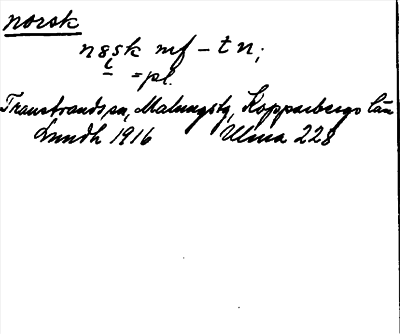 norsk
nɞsk mf - t n;
= pl.
Transtrands sn, Malungs tg, Kopparbergs län
Lundh 1916 Ulma 228